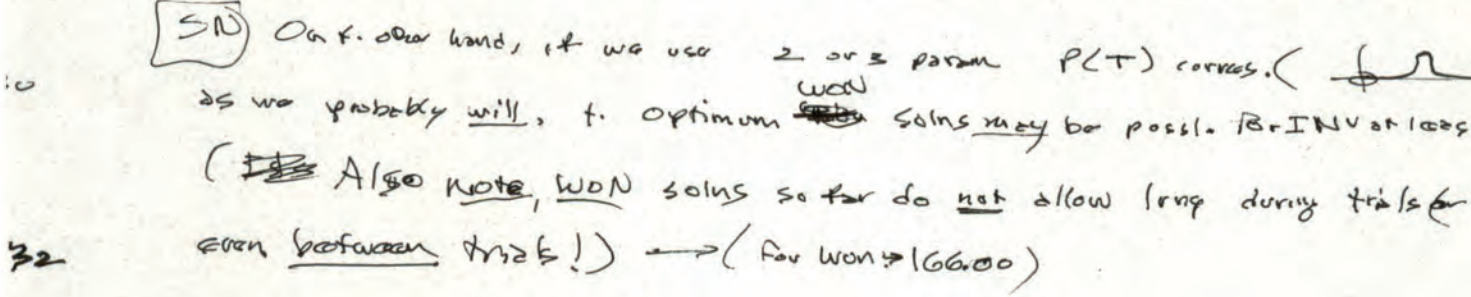 SN On t. other hand, if we use 2 or 3 param P(T) corresp. (
as we probably will, t. optimum WON solns may be possl. for INV at least
( Also note, WON solns so far do not allow lrng during trials or
even between trials!) → ( for WON → 166.00 )
32